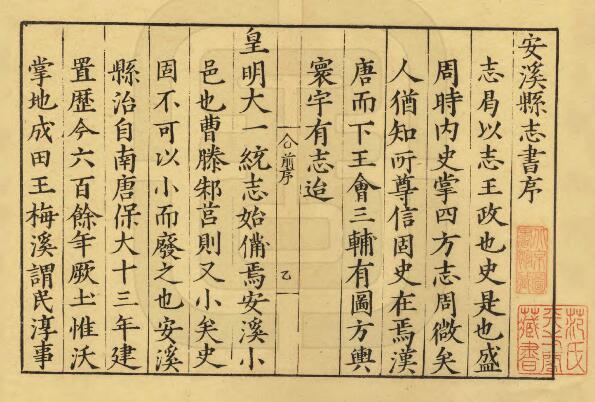 安溪縣志書序
志曷以志王政也史是也盛
周時内史掌四方志周微矣
人猶知所尊信固史在焉漢
唐而下王會三輔有圖方輿
寰宇有志迨
前序
皇明大一統志始備焉安溪小
邑也曹滕邾莒則又小矣史
固不可以小而廢之也安溪
縣治自南唐保大十三年建
置歷今六百餘年厥土惟沃
掌地成田王梅溪謂民淳事
范氏天一閣藏書